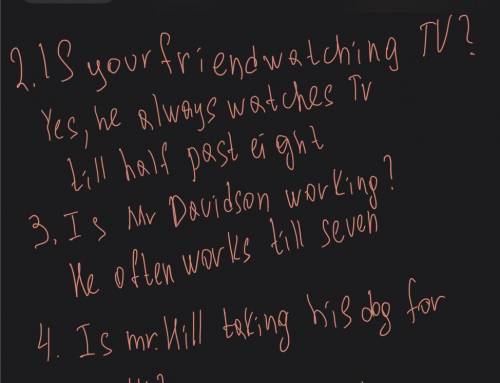 2. Is your friend watching TV?
Yes, he always watches Tv
till half past eight
3. Is Mr Davidson working?
He often works till seven
4. Is mr. Hill taking his dog for